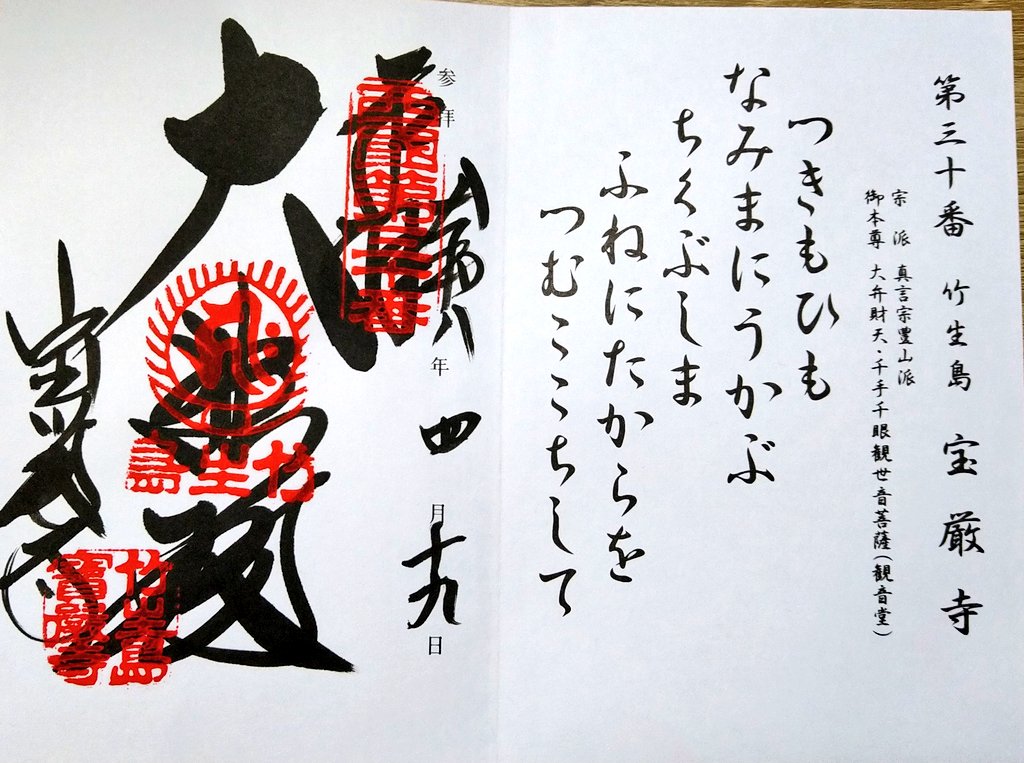 第三十番 竹生島 宝厳寺
宗派 真言宗豊山派
御本尊 大弁財天・千手千眼観世音菩薩(観音堂)
つきもひも
なみまにうかぶ
ちくぶしま
ふねにたからを
つむここちして
参拝 八年四月十九日
西國第三十番
大悲殿
竹生島
宝厳寺
竹生島
寶嚴寺